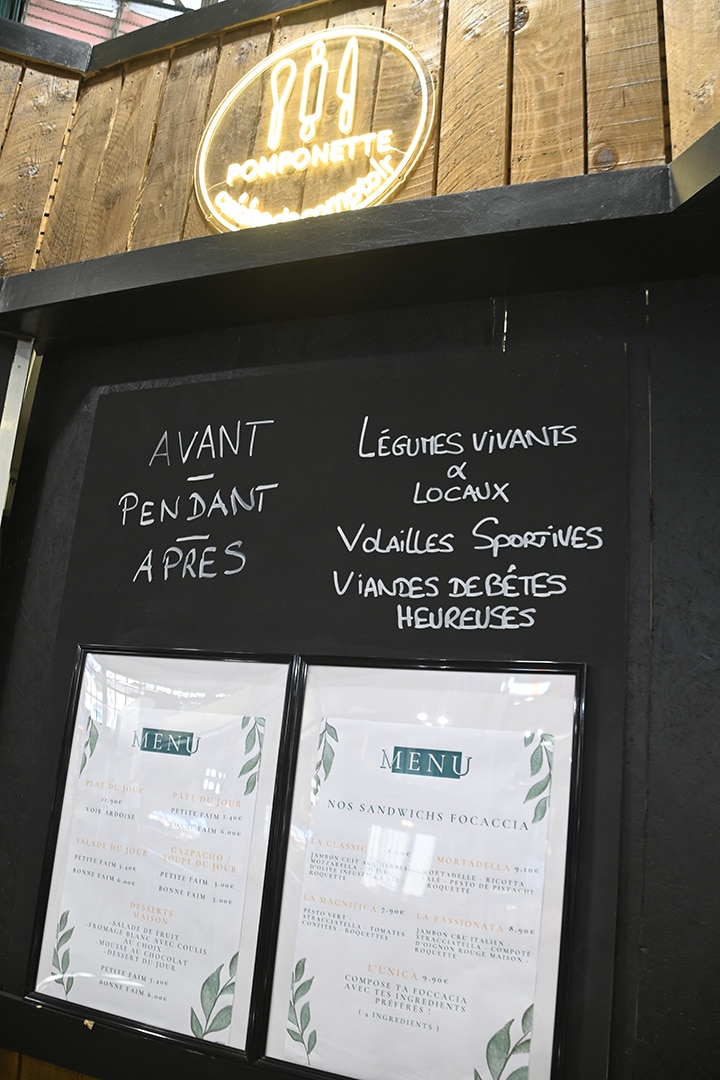 POMPONETTE
AVANT
-
PENDANT
-
APRÈS
LÉGUMES VIVANTS
&
LOCAUX
VOLAILLES SPORTIVES
VIANDES DE BÊTES
HEUREUSES
MENU
PLAT DU JOUR
11.90€
VOIR ARDOISE
PÂTE DU JOUR
PETITE FAIM 3.40€
BONNE FAIM 6.00€
SALADE DU JOUR
PETITE FAIM 3.40€
BONNE FAIM 6.00€
GAZPACHO /
SOUPE DU JOUR
PETITE FAIM 3.00€
BONNE FAIM 5.00€
DESSERTS
MAISON
-SALADE DE FRUIT
-FROMAGE BLANC AVEC COULIS
AU CHOIX
-MOUSSE AU CHOCOLAT
-DESSERT DU JOUR
PETITE FAIM 3.40€
BONNE FAIM 6.00€
MENU
NOS SANDWICHS FOCACCIA
LA CLASSICO
JAMBON CUIT AUX
MOZZARELLA
D'OLIVE
ROQUETTE
MORTADELLA 9.10€
MORTADELLE - RICOTTA
- PESTO DE PISTACHE
ROQUETTE
LA MAGNIFICA 7.90€
PESTO VERT -
STRACCIATELLA - TOMATES
CONFITES - ROQUETTES
LA PASSIONATA 8.90€
JAMBON CRU ITALIEN
STRACCIATELLA - COMPOTÉ
D'OIGNON ROUGE MAISON -
ROQUETTE
L'UNICA 9.90€
COMPOSE TA FOCCACIA
AVEC TES INGREDIENTS
PRÉFÉRÉS !
( 4 INGREDIENTS )